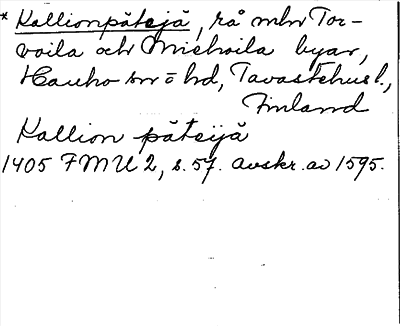 * Kallionpätejä, rå mln Tor-
voila och Miehoila byar,
Hauho sn o hd, Tavastehus l.,
Finland
Kallion päteijä
1405 FMU 2, s. 57. avskr. av 1595.